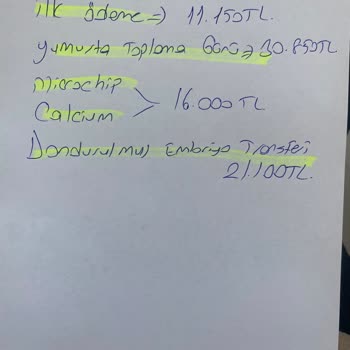 ilk ödeme => 11.150TL.
Yumurta Toplama Günü => 30.850TL
Microchip
Calcium > 16.000TL
Dondurulmuş Embriyo Transferi
21.100TL.